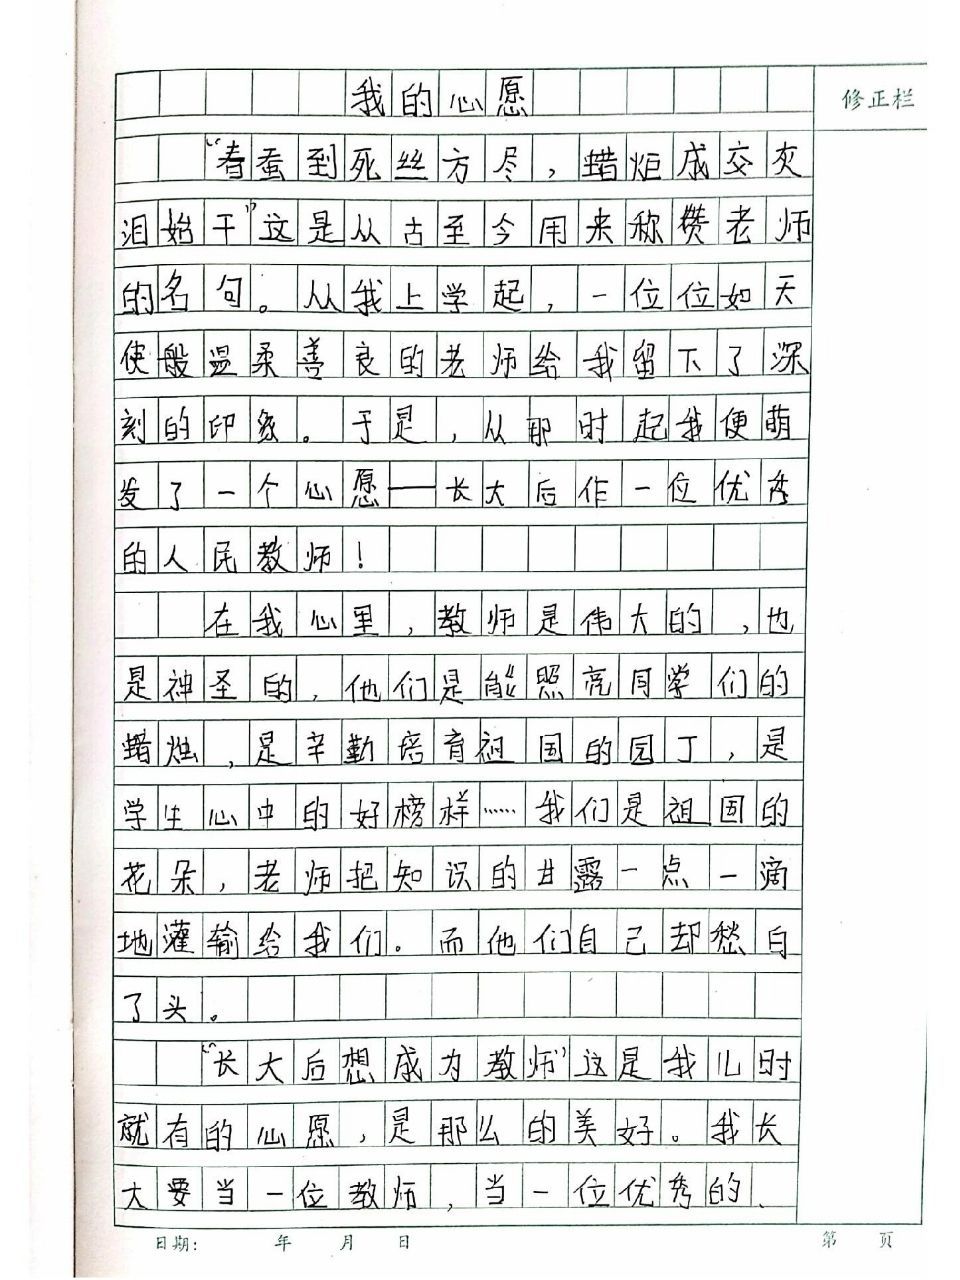 我的心愿
修正栏
“春蚕到死丝方尽，蜡炬成交灰
泪始干”这是从古至今用来称赞老师
的名句。从我上学起，一位位如天
使般温柔善良的老师给我留下了深
刻的印象。于是，从那时起我便萌
发了一个心愿——长大后作一位优秀
的人民教师！
在我心里，教师是伟大的，也
是神圣的，他们是能照亮同学们的
蜡烛，是辛勤培育祖国的园丁，是
学生心中的好榜样……我们是祖国的
花朵，老师把知识的甘露一点一滴
地灌输给我们。而他们自己却愁白
了头。
“长大后想成为教师”这是我儿时
就有的心愿，是那么的美好。我长
大要当一位教师，当一位优秀的、
日期： 年 月 日
第 页